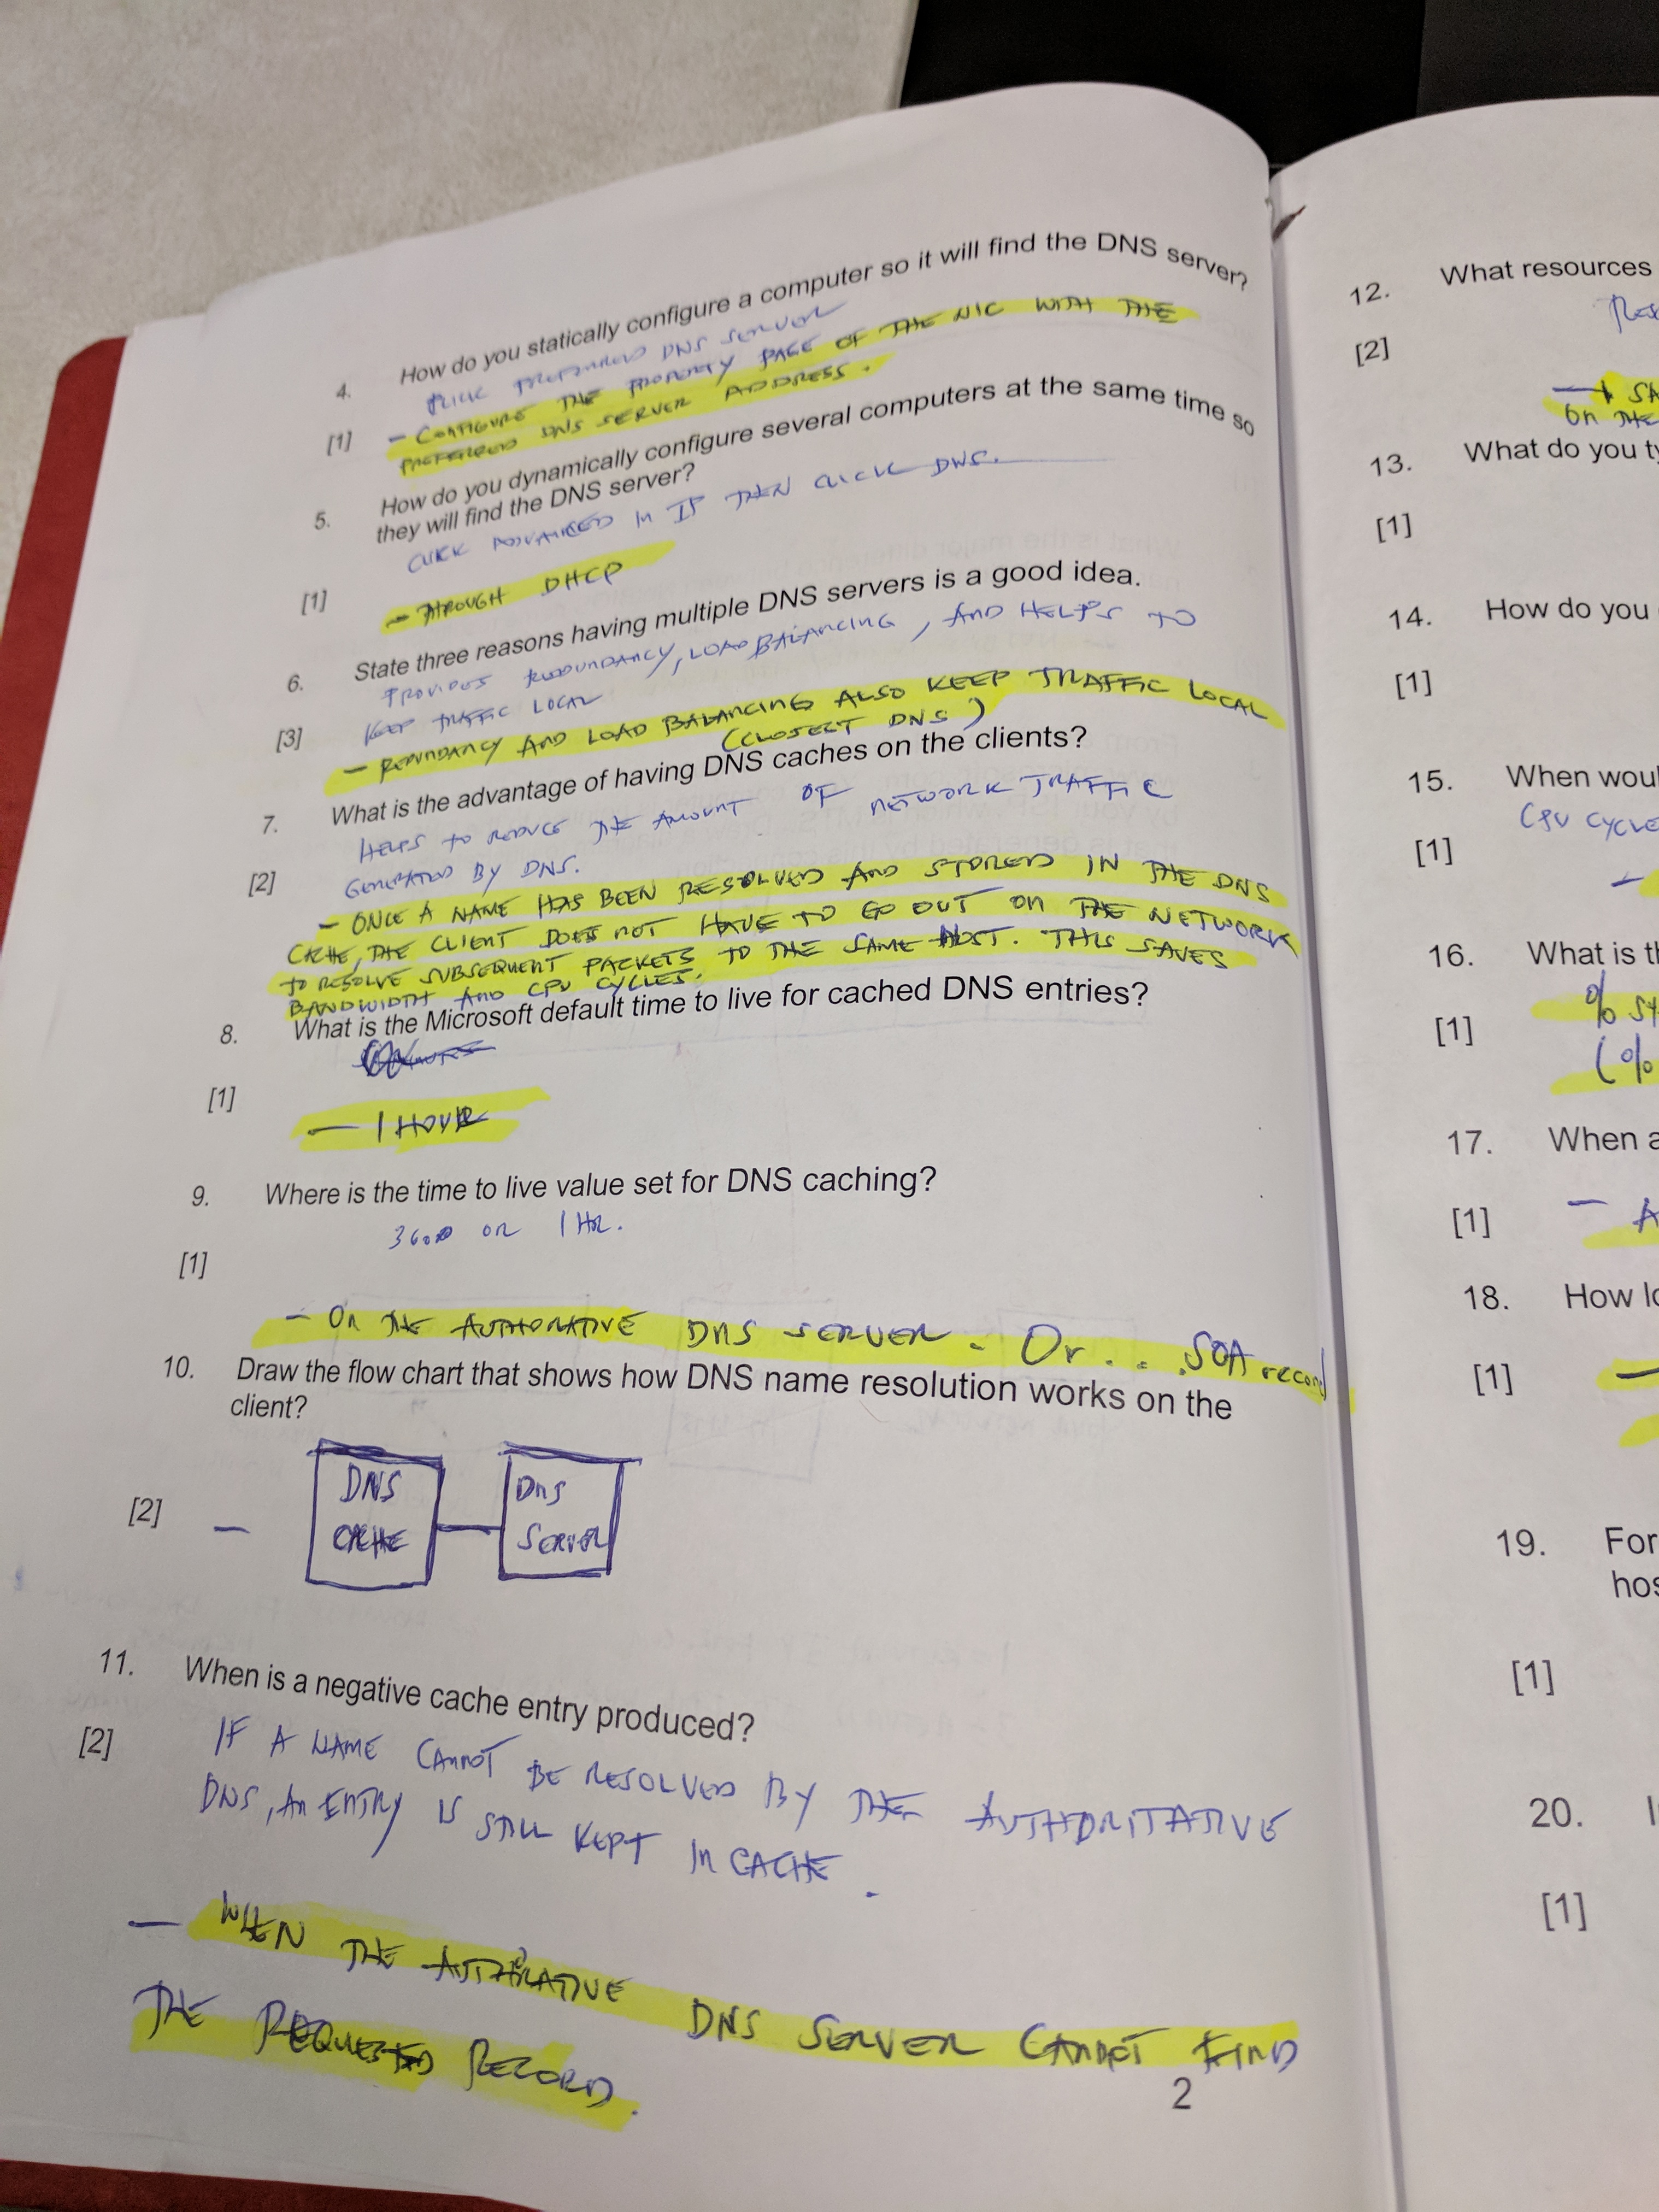 4. How do you statically configure a computer so it will find the DNS server?
CLICK PREFERRED DNS SERVER
[1] - CONFIGURE THE PROPERTY PAGE OF THE NIC WITH THE
PREFERRED DNS SERVER ADDRESS.
5. How do you dynamically configure several computers at the same time so
they will find the DNS server?
CLICK ADVANCED IN IP THEN CLICK DNS.
[1] - THROUGH DHCP
6. State three reasons having multiple DNS servers is a good idea.
PROVIDES REDUNDANCY, LOAD BALANCING, AND HELPS TO
[3] KEEP TRAFFIC LOCAL
- REDUNDANCY AND LOAD BALANCING ALSO KEEP TRAFFIC LOCAL
(CLOSEST DNS)
7. What is the advantage of having DNS caches on the clients?
HELPS TO REDUCE THE AMOUNT OF NETWORK TRAFFIC
[2] GENERATED BY DNS.
- ONCE A NAME HAS BEEN RESOLVED AND STORED IN THE DNS
CACHE, THE CLIENT DOES NOT HAVE TO GO OUT ON THE NETWORK
TO RESOLVE SUBSEQUENT PACKETS TO THE SAME HOST. THIS SAVES
BANDWIDTH AND CPU CYCLES.
8. What is the Microsoft default time to live for cached DNS entries?
[1]
- 1 HOUR
9. Where is the time to live value set for DNS caching?
3600 OR 1 HR.
[1]
- ON THE AUTHORATIVE DNS SERVER - Or... SOA record
10. Draw the flow chart that shows how DNS name resolution works on the
client?
[2] -
DNS
CACHE
DNS
SERVER
11. When is a negative cache entry produced?
[2] IF A NAME CANNOT BE RESOLVED BY THE AUTHORITATIVE
DNS, AN ENTRY IS STILL KEPT IN CACHE.
- WHEN THE AUTHORATIVE DNS SERVER CANNOT FIND
THE REQUESTED RECORD.
2
12. What resources
[2]
→ SA
ON THE
13. What do you ty
[1]
14. How do you
[1]
15. When woul
CPU CYCLE
[1] -
16. What is th
% SY
[1] (%
17. When a
[1] - A
18. How lo
[1] -
19. For
hos
[1]
20. I
[1]